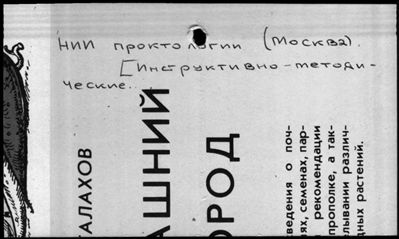 НИИ проктологии (Москва).
[Инструктивно-методи-
ческие...
АЛАХОВ
АШНИЙ
ОРОД
ведения о поч-
ях, семенах, пар-
рекомендации
прополке, а так-
лывании различ-
дных растений.